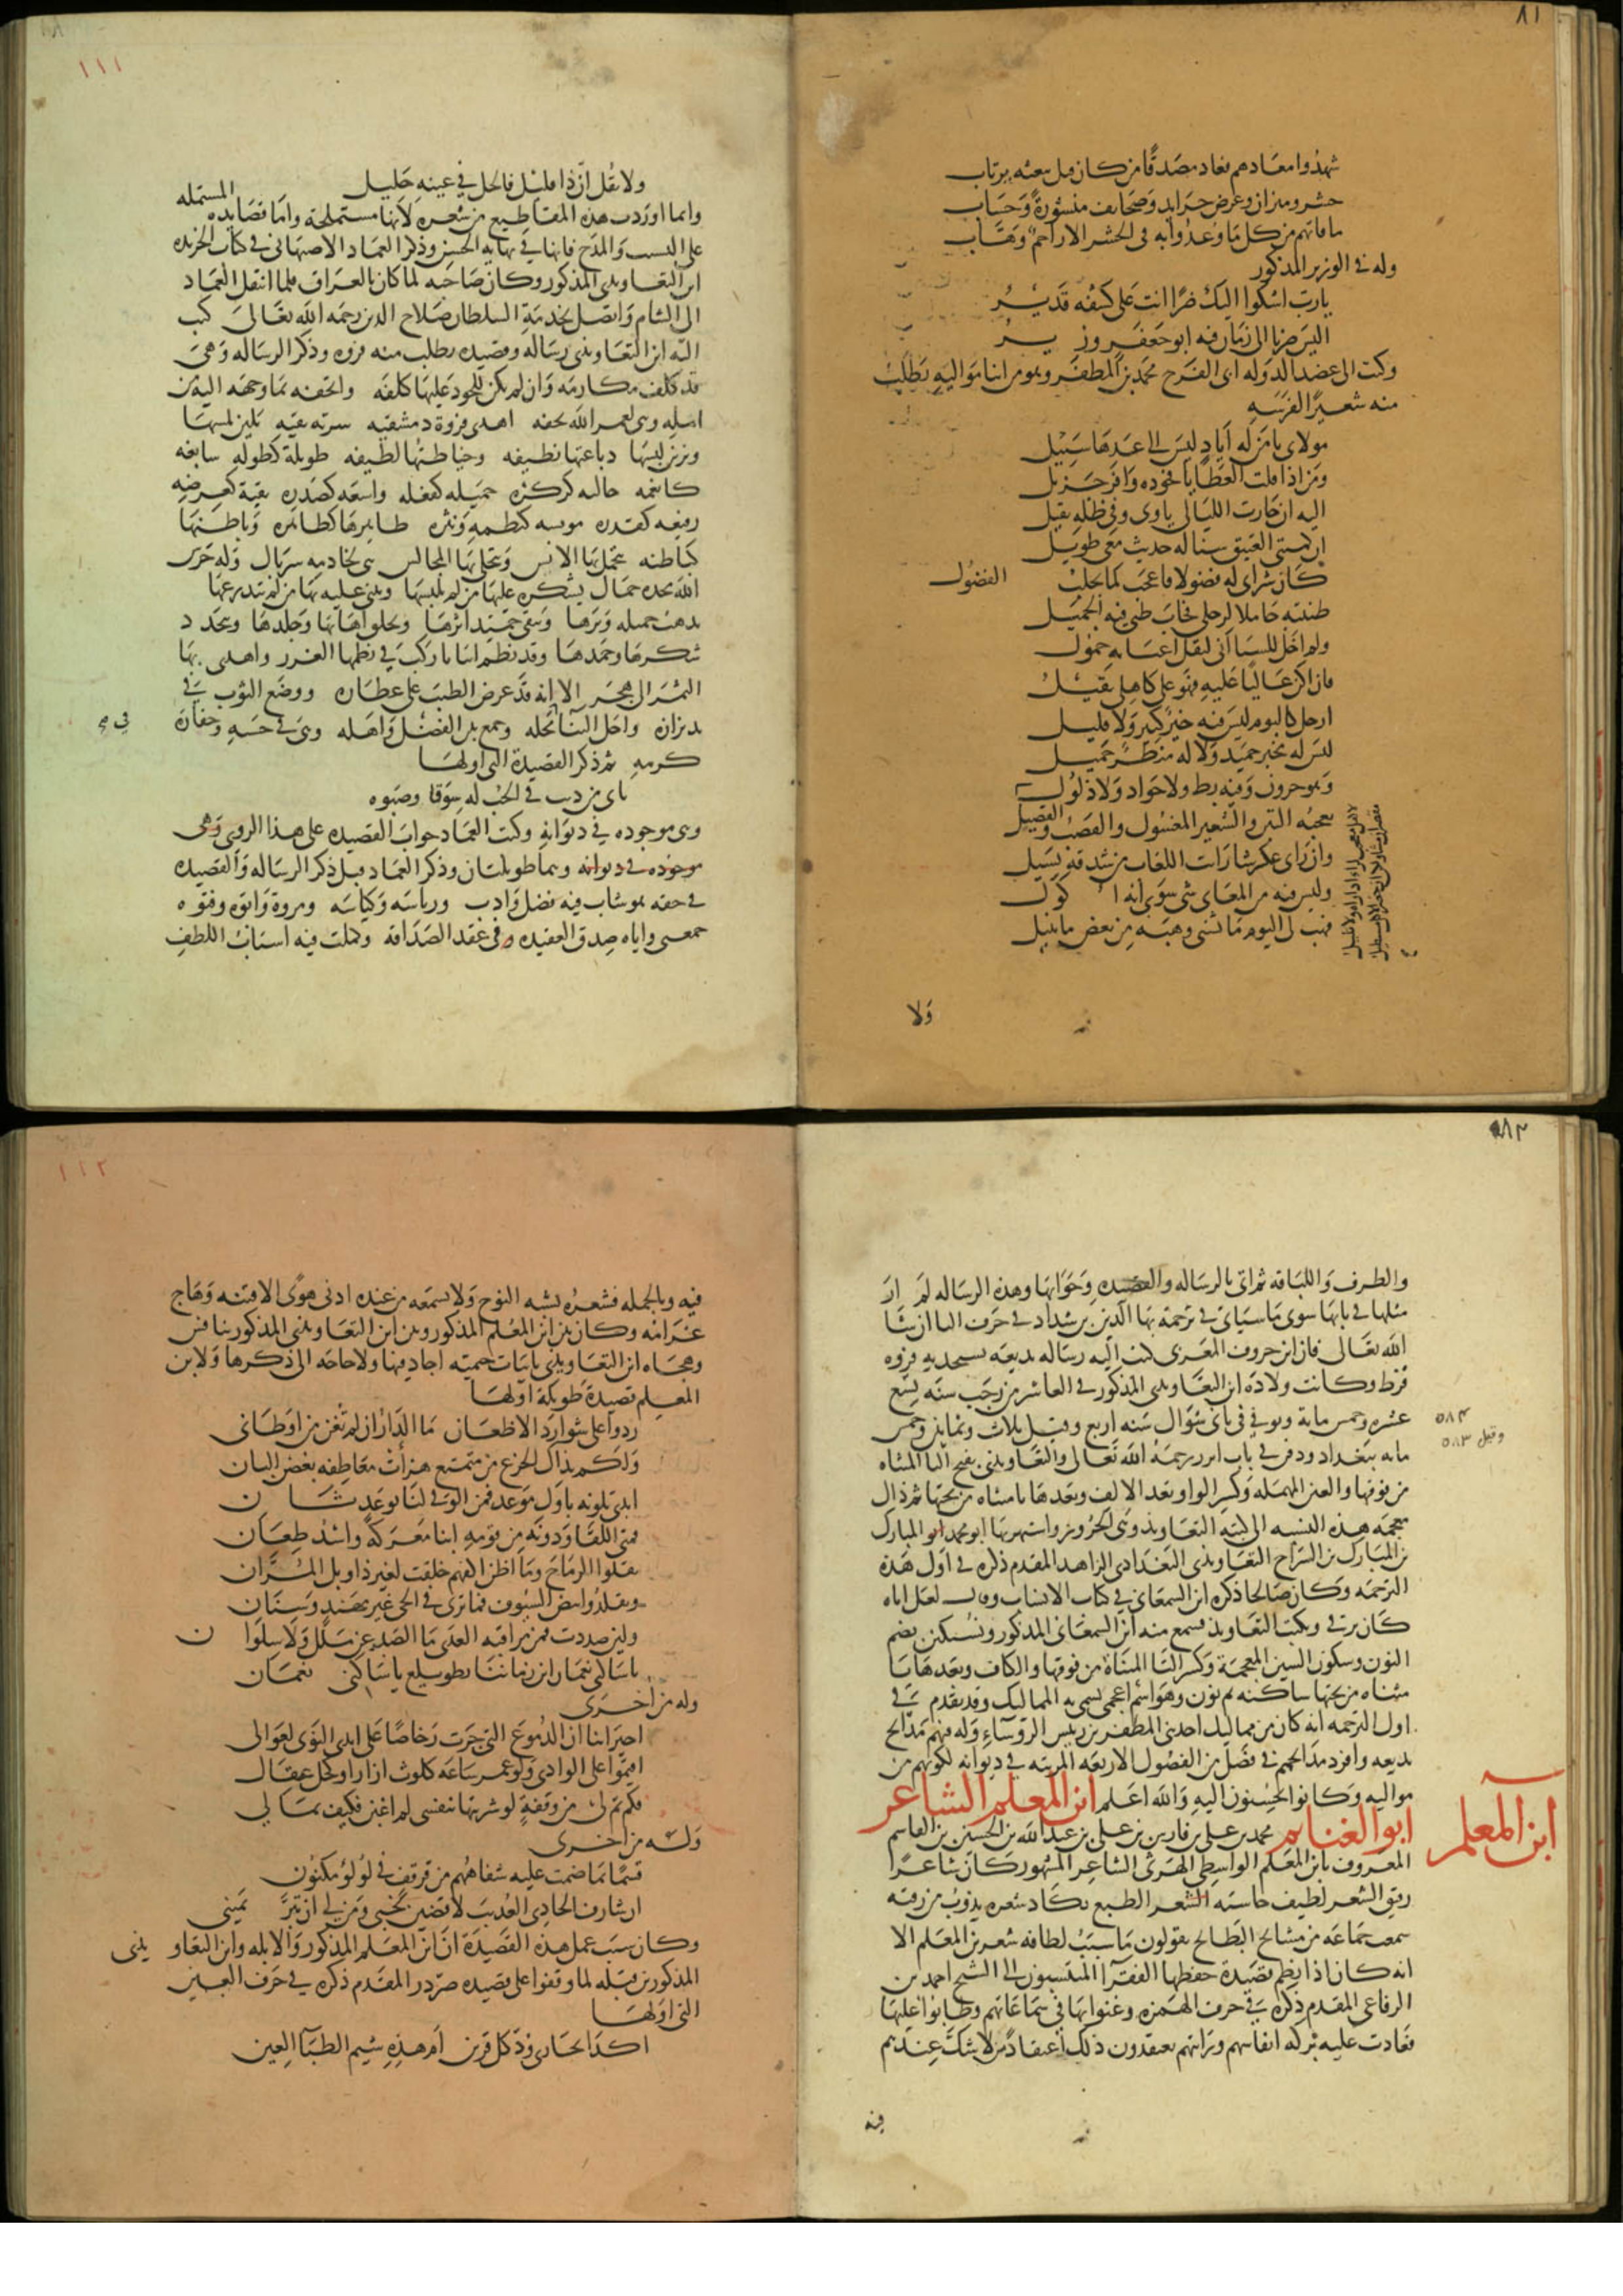 ٨١
شهدوا معادهم فعاد مصدقا من كان قبل ببعثه يرتاب
حشر وميزان وعرض جرايد وصحايف منشورة وحساب
ما فاتهم من كل ما وعدوا به في الحشر الا راحم وهاب
وله في الوزير المذكور
يا رب اشكوا اليك ضرا انت على كشفه قدير
اليس صرنا الى زمان فيه ابو جعفر وزير
وكتب الى عضد الدولة ابي الفرج محمد بن المظفر وهو من ابنا مواليه يطلب
منه شعيرا لفرسه
مولاي يا من له اياد ليس الى عدها سبيل
ومن اذا قلت العطايا فجوده وافر جزيل
اليه ان جارت الليالي ناوي وفي ظله نقيل
ان كميتي العتيق سنا له حديث معي طويل
كان شراي له فضولا فاعجب لما يجلب الفضول
ظننته حاملا لرحلي فخاب ظني فيه الجميل
ولم اخل للشقا اني لثقل اعبايه حمول
فان اكن عاليا عليه فهو على كاهلي ثقيل
ارجل كالبوم ليس فيه خير كثير ولا قليل
ليس له مخبر حميد ولا له منظر جميل
وهو حرون وفيه بطء ولا جواد ولا ذلول
يعجبه التبن والشعير المغسول والقصب والفصيل
وان راى عكرشا رايت اللعاب من شدقه يسيل
وليس فيه من المعاني شي سوى انه اكول
فهب له اليوم ما تسنى وهبه من بعض ما تنيل
ولا
١١١
ولا تقل ان ذا قليل فالجل في عينه جليل
وانما اوردت هذه المقاطيع من شعره لانها مستملحة واما قصايده المشتملة
على النسيب والمدح فانها في نهاية الحسن وذكر العماد الاصبهاني في كتاب الخريدة
ابن التعاويذي المذكور وكان صاحبه لما كان بالعراق فلما انتقل العماد
الى الشام واتصل بخدمة السلطان صلاح الدين رحمه الله تعالى كتب
اليه ابن التعاويذي رسالة وقصيدة يطلب منه فروة وذكر الرسالة وهي
قد كلف مكارمه وان لم يكن للجود عليها كلفه واتحفه بما وجهه اليه من
امله وهي لعمر الله تحفه اهدى فروة دمشقيه سرية نقيه يلين لمسها
ويزين لبسها دباغتها نظيفه وخياطتها لطيفه طويلة كطوله سابغة
كانعمه حالية كذكره جميلة كفعله واسعة كصدره نقية كعرضه
رفيعة كقدره موشية كنظمه ونثره ظاهرها كظاهره وباطنها
كباطنه يتجمل بها اللابس وتتحلى بها المجالس هي لخادمه سربال وله حرس
الله مجده جمال يشكره عليها من لم يلبسها ويثني عليه بها من لم يتدرعها
يذهب خميله وبرها ويبقى حميد اثرها ويخلق اهابها وجلدها ويتجدد
شكرها وحمدها وقد نظم ابياتا ركب في نظمها الغرر واهدى بها
التمر الى هجر الا انه قد عرض الطيب على عطاره ووضع الثوب في
يد بزازه واحل الثنا محله وجمع بين الفضل واهله وهي في حسبه وخفارة
كرمه ثم ذكر القصيدة التي اولها
بابي من ذبت في الحب له شوقا وصبوه
وهي موجوده في ديوانه وكتب العماد جواب القصيدة على هذا الروي وهي
موجوده في ديوانه وهما طويلتان وذكر العماد قبل ذكر الرسالة والقصيدة
في حقه هو شاب فيه فضل وادب ورياسة وكياسة ومروة وابوة وفتوة
جمعني واياه صدق العقيده في عقد الصداقة وكملت فيه اسباب اللطف
٨٢
والظرف واللباقة ثم اتى بالرسالة والقصيدة وجوابها وهذه الرسالة لم ار
مثلها في بابها سوى ما سياتي في ترجمة بها الدين بن شداد في حرف اليا ان شا
الله تعالى فان ابن خروف المغربي كتب اليه رسالة بديعة يستجديه فروة
قرظ وكانت ولادة ابن التعاويذي المذكور في العاشر من رجب سنه تسع
عشره وخمس ماية وتوفي في ثاني شوال سنه اربع وقيل ثلاث وثمانين وخمس
٥٨٤
وقيل ٥٨٣
مايه ببغداد ودفن في باب ابرز رحمه الله تعالى والتعاويذي بفتح التا المثناه
من فوقها والعين المهملة وكسر الواو بعد الالف وبعدها يا مثناه من تحتها ثم ذال
معجمه هذه النسبه الى كتبة التعاويذ وهي الحروز واشتهر بها ابو محمد المبارك
بن المبارك بن السراج التعاويذي البغدادي الزاهد المقدم ذكره في اول هذه
الترجمه وكان صالحا ذكره ابن السمعاني في كتاب الانساب وقال لعل اباه
كان يرقي ويكتب التعاويذ وسمع منه ابن السمعاني المذكور ونشتكين بضم
النون وسكون الشين المعجمة وكسر التا المثناة من فوقها والكاف وبعدها يا
مثناه من تحتها ساكنه ثم نون وهو اسم اعجمي تسمى به المماليك وقد تقدم في
اول الترجمه انه كان من مماليك احد بني المظفر بن رييس الروساء وله فيهم مدايح
بديعه وافرد مدايحهم في فصل من الفصول الاربعه المرتبه في ديوانه لكونهم من
مواليه وكانوا يحسنون اليه والله اعلم ابن المعلم الشاعر
ابن المعلم
ابو الغنايم محمد بن علي بن فارس بن علي بن عبد الله بن الحسين بن القاسم
المعروف بابن المعلم الواسطي الهرثي الشاعر المشهور كان شاعرا
رقيق الشعر لطيف حاشية الشعر الطبع يكاد شعره يذوب من رقته
سمعت جماعه من مشايخ البطايح يقولون ما سبب لطافه شعر بن المعلم الا
انه كان اذا نظم قصيدة حفظها الفقرا المنتسبون الى الشيخ احمد بن
الرفاعي المقدم ذكره في حرف الهمزه وغنوا بها في سماعاتهم وطابوا عليها
فعادت عليه بركة انفاسهم ورايتهم يعتقدون ذلك اعتقادا لا شك عندهم
فيه
١١٢
فيه وبالجمله فشعره يشبه النوح ولا يسمعه من عنده ادنى هوى الا فتنه وهاج
غرامه وكان بين ابن المعلم المذكور وبين ابن التعاويذي المذكور تنافس
وهجاه ابن التعاويذي بابيات جيمية اجاد فيها ولا حاجه الى ذكرها ولابن
المعلم قصيدة طويلة اولها
ردوا علي شوارد الاظعان ما الدار ان لم تغن من اوطاني
ولكم بذاك الجزع من متمتع هزأت معاطفه بغصن البان
ابدى تلونه باول موعد فمن الوفي لنا بوعد ثان
فمتى اللقا ودونه من قومه ابنا معركة واسد طعان
نقلوا الرماح وما اظن اكفهم خلقت لغير ذوابل المران
وتقلدوا بيض السيوف فما ترى في الحي غير مهند وسنان
ولين صددت فمن مراقبة العدى ما الصد عن ملل ولا سلوان
يا ساكني نعمان اين زماننا بطويلع يا ساكني نعمان
وله من اخرى
اجيراننا ان الدموع التي جرت رخاصا على ايدي النوى لغوالي
اقيموا على الوادي ولو عمر ساعة كلوث ازار او كحل عقال
فكم ثم لي من وقفة لو شريتها بنفسي لم اغبن فكيف بمالي
وله من اخرى
قسما بما ضمت عليه شفاههم من قرقف في لولو مكنون
ان شارف الحادي العذيب لاقضين نحبي ومن لي ان تبر يميني
وكان سبب عمل هذه القصيدة ان ابن المعلم المذكور والابله وابن التعاويذي
المذكورين قبله لما وقفوا على قصيده صردر المقدم ذكره في حرف العين
التي اولها
اكذا يجازى ود كل قرين ام هذه شيم الظباء العين